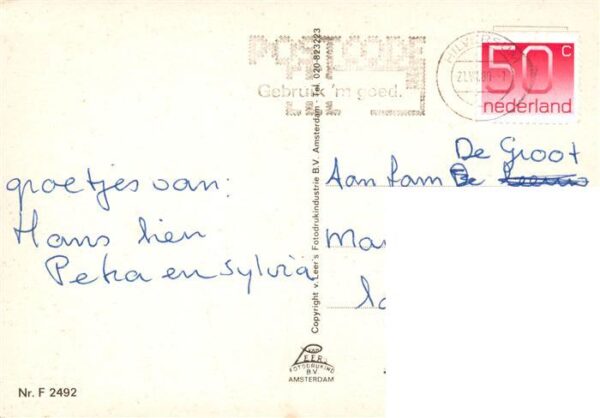 POSTCODE
Gebruik 'm goed.
50 c
nederland
groetjes van:
Hans Lien
Petra en Sylvia
De Groot
Aan fam De
Ma
Copyright v. Leer's Fotodrukindustrie B.V. Amsterdam - Tel. 020-823223
VAN
LEER'S
FOTODRUKIND
B.V.
AMSTERDAM
Nr. F 2492